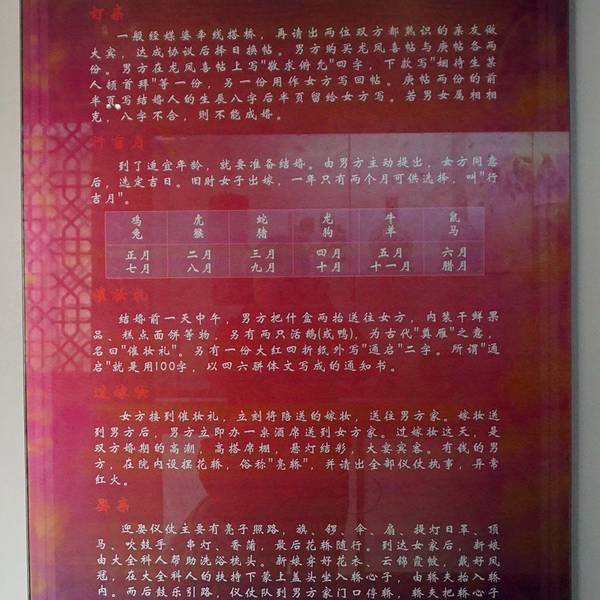 订亲
一般经媒婆牵线搭桥，再请出两位双方都熟识的亲友做
大宾，达成协议后择日换帖。男方购买龙凤喜帖与庚帖各两
份。男方在龙凤喜帖上写"敬求俯允"四字，下款写"姻待生某
人顿首拜"等一份，另一份用作女方写回帖。庚帖两份的前
半页写结婚人的生辰八字后半页留给女方写。若男女属相相
克，八字不合，则不能成婚。
行吉月
到了适宜年龄，就要准备结婚。由男方主动提出，女方同意
后，选定吉日。旧时女子出嫁，一年只有两个月可供选择，叫"行
吉月"。
鸡 虎 蛇 龙 牛 鼠
兔 猴 猪 狗 羊 马
正月 二月 三月 四月 五月 六月
七月 八月 九月 十月 十一月 腊月
催妆礼
结婚前一天中午，男方把什盒两抬送往女方，内装干鲜果
品、糕点面饼等物，另有两只活鹅(或鸭)，为古代"奠雁"之意，
名曰"催妆礼"。另有一份大红四折纸外写"通启"二字。所谓"通
启"就是用100字，以四六骈体文写成的通知书。
过嫁妆
女方接到催妆礼，立刻将陪送的嫁妆，送往男方家。嫁妆送
到男方后，男方立即办一桌酒席送到女方家。过嫁妆这天，是
双方婚期的高潮，高搭席棚，悬灯结彩，大宴宾客。有钱的男
方，在院内设摆花轿，俗称"亮轿"，并请出全部仪仗执事，异常
红火。
娶亲
迎娶仪仗主要有亮子照路，旗、锣、伞、扇、提灯日罩、顶
马、吹鼓手，串灯、香蒲，最后花轿随行。到达女家后，新娘
由大全科人帮助洗浴梳头。新娘穿好花衣、云锦霞帔，戴好凤
冠，在大全科人的扶持下蒙上盖头坐入轿心子，由轿夫抬入轿
内。而后鼓乐引路，仪仗队到男方家门口停轿，轿夫把轿心子